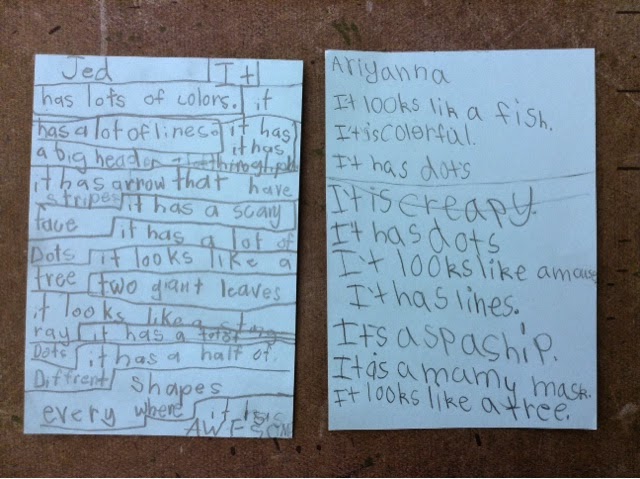 Jed It
has lots of colors. it
has a lot of lines. it has
it has
a big head
it has arrow that have
stripes it has a scary
face it has a lot of
Dots it looks like a
tree two giant leaves
it looks like a sting
ray it has a
Dots it has a half of.
Diffrent Shapes
every where it is
AWESOME
Ariyanna
It looks lik a fish.
It is colorful.
It has dots
It is creapy.
It has dots
It looks like a
It has lines.
It's a spaship.
It is a mamy mask.
It looks like a tree.